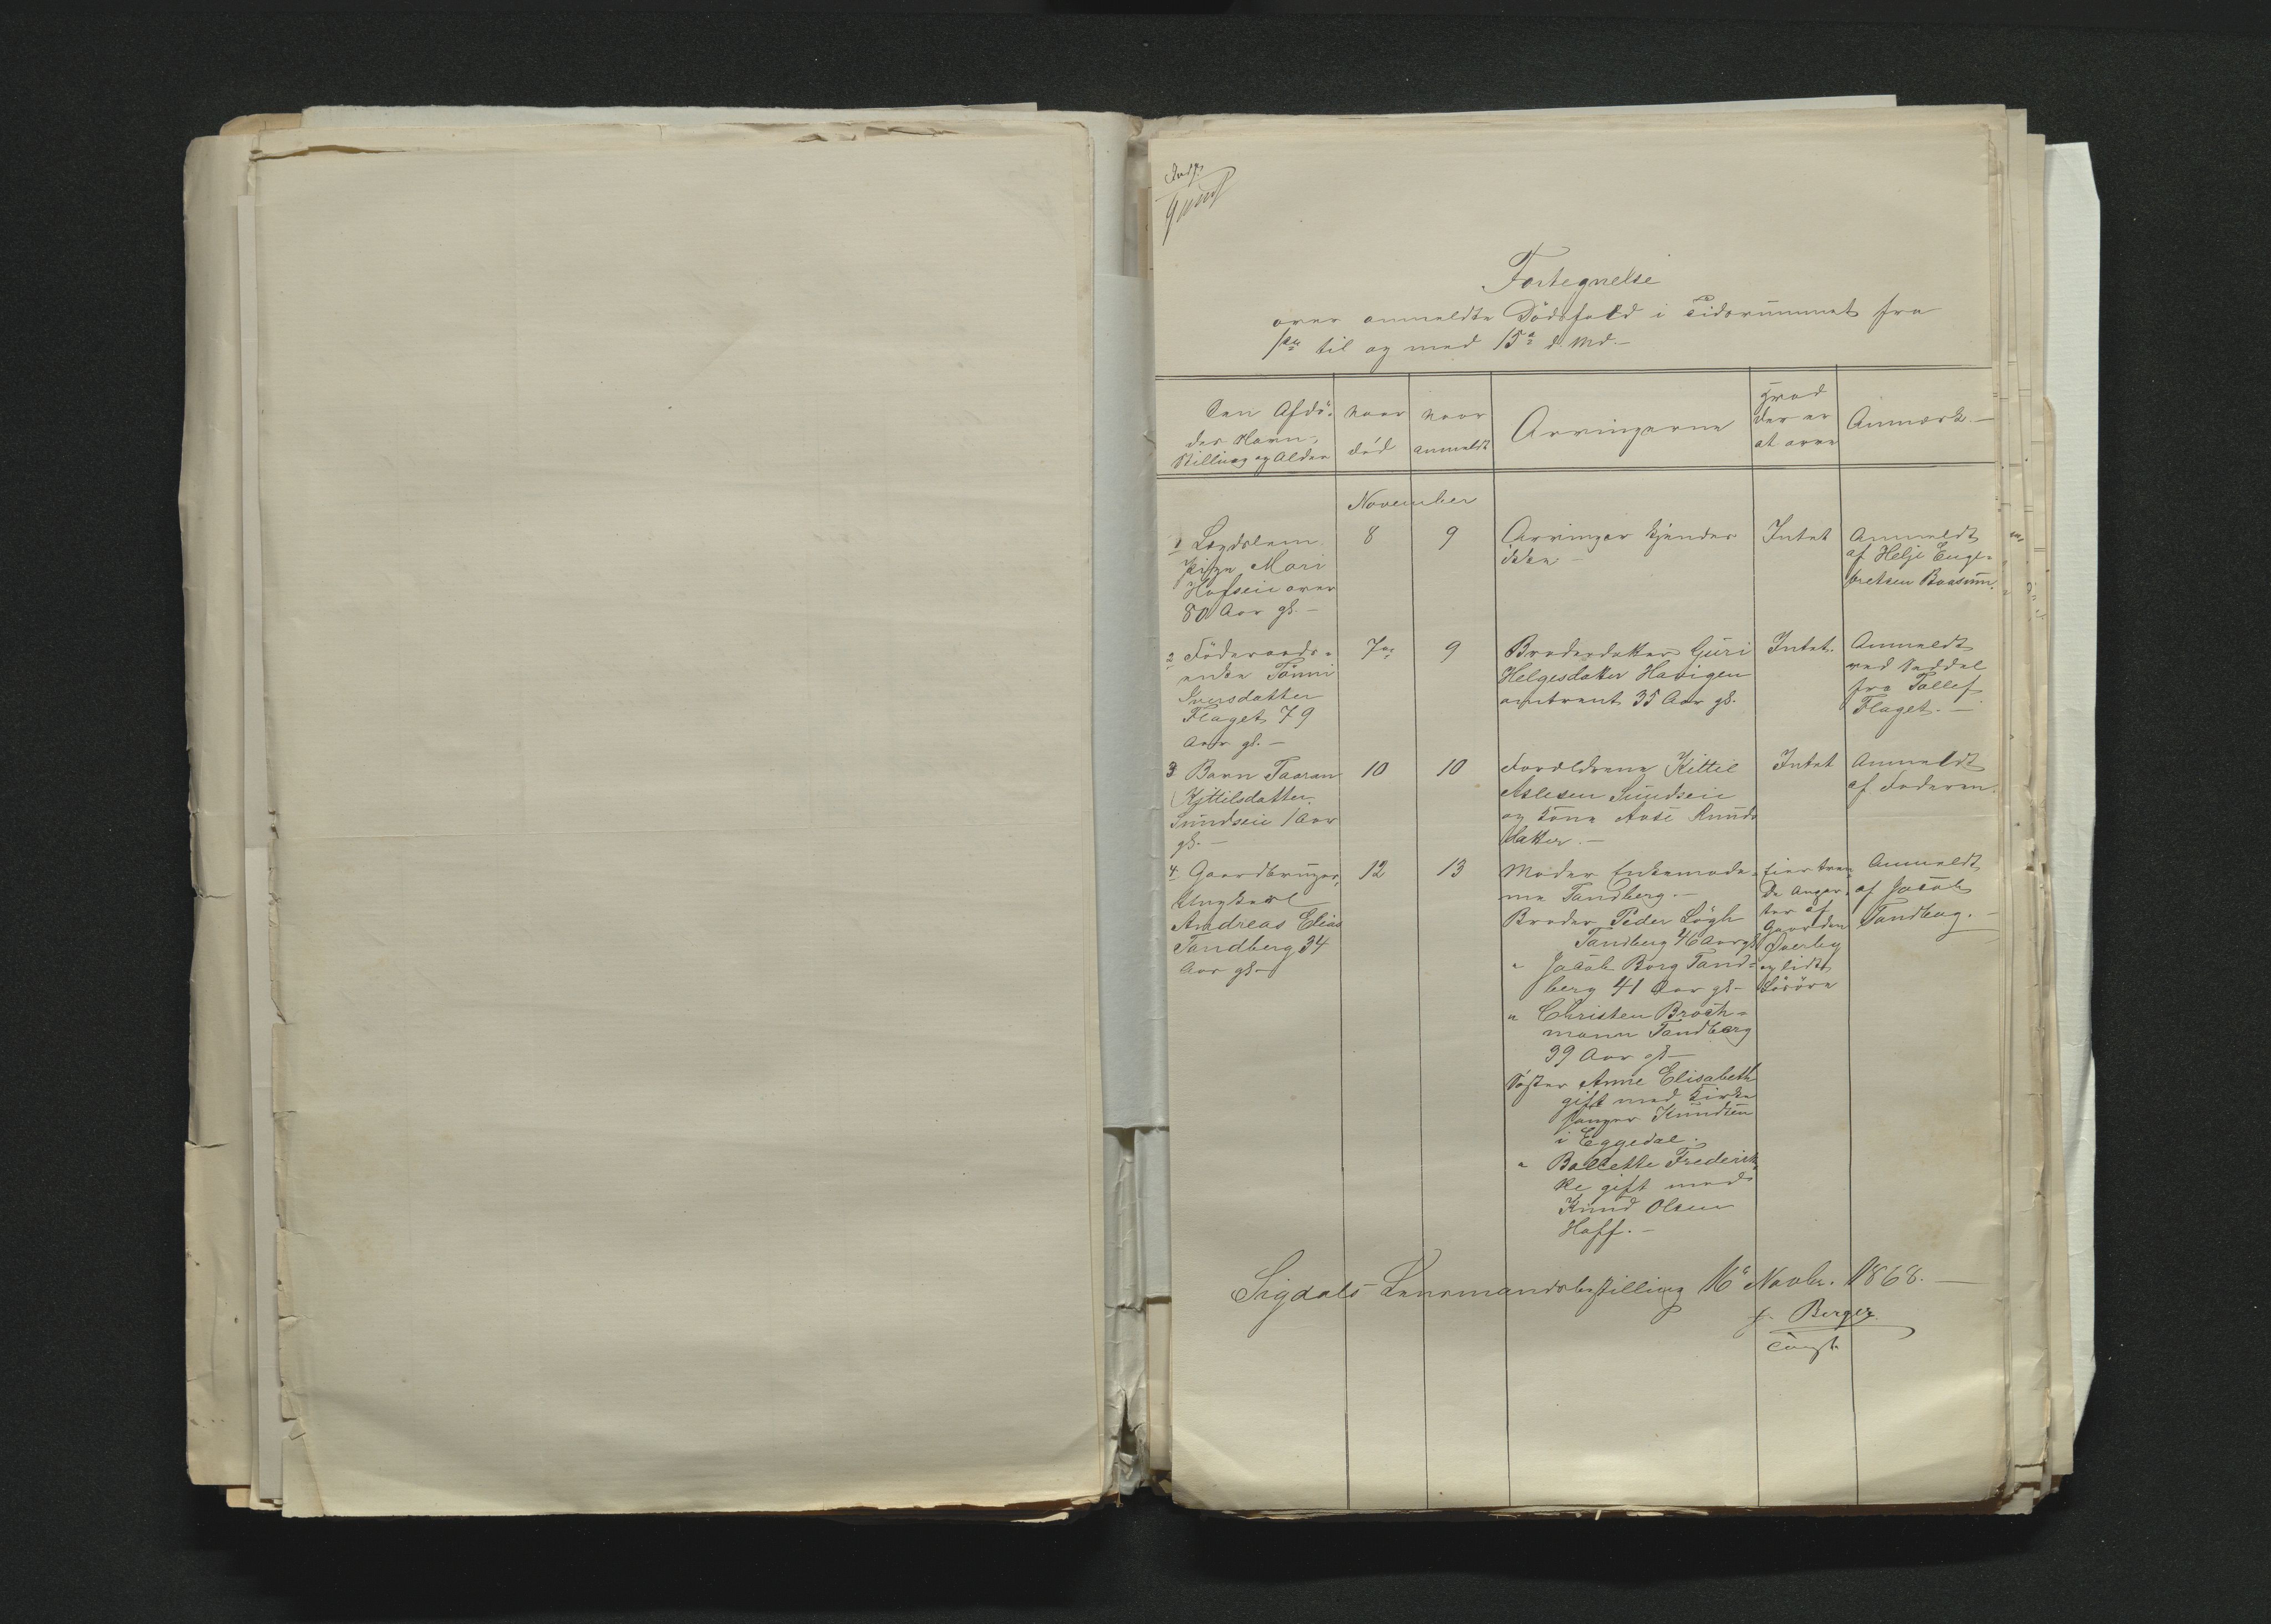 Fortegnelse
over anmeldte Dödsfald i Tidsrummet fra
1ste til og med 15de d. Md.-
Den Afdö-
des Navn,
Stilling og Alder
naar
död
naar
anmeldt
Arvingerne
Hvad
der er
at arve
Anmærk.-
November
1 Lægdslem
Pige Mari
Hofseie over
80 Aar gl.-
8
9
Arvinger kjendes
ikke -
Intet
Anmeldt
af Helje Enge-
bretsen Baasum.
2 Föderaads-
enke Tönni
Iversdatter
Flaget 79
Aar gl.-
7de
9
Broderdatter Guri
Helgesdatter Havigen
omtrent 35 Aar gl.
Intet.
Anmeldt
ved Seddel
fra Tollef
Flaget.-
3 Barn Taaran
Kittilsdatter
Sundseie 1 Aar
gl.-
10
10
Forældrene Kittil
Aslesen Sundseie
og Kone Aase Knuds
datter.-
Intet
Anmeldt
af Faderen.
4 Gaardbruger,
Ungkarl
Andreas Elias
Tandberg 34
Aar gl.-
12
13
Moder Enkemada-
me Tandberg.-
Broder Peder Lögh
Tandberg 46 Aar gl
" Jacob Borg Tand-
berg 41 Aar gl-
" Christen Broch-
mann Tandberg
39 Aar gl-
Söster Anne Elisabeth
gift med Kirke
sanger Knudsen
i Eggedal.
" Bolette Frederik
ke gift med
Knud Olsen
Hoff.-
Gaarden
Överby
og lidt
Lösöre
Anmeldt
af Jacob
Tandberg.-
Sigdals Lensmandsbestilling 16de Novbr. 1868.-
Berger